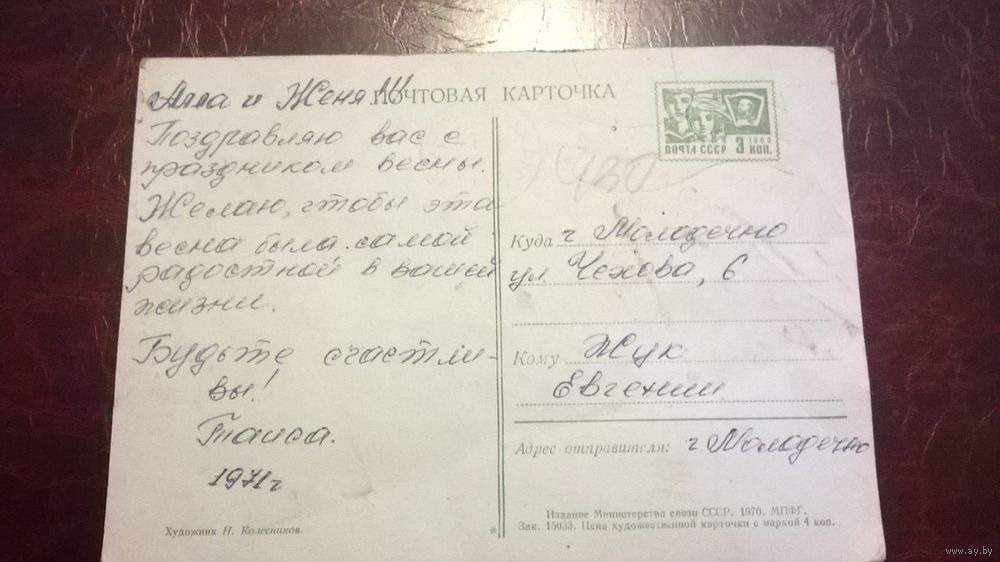 Алла и Женя!!!
ПОЧТОВАЯ КАРТОЧКА
Поздравляю вас с
праздником весны.
Желаю, чтобы эта
весна была самой
радостной в вашей
жизни.
Будьте счастли-
вы!
Таиса.
1971г
Художник Н. Колесников.
ПОЧТА СССР 3 КОП.
1966
730
Куда г Молодечно
ул Чехова, 6
Кому Жук
Евгении
Адрес отправителя: г Молодечно
Издание Министерства связи СССР. 1970. МПФГ.
Зак. 15033. Цена художественной карточки с маркой 4 коп.
www.ay.by